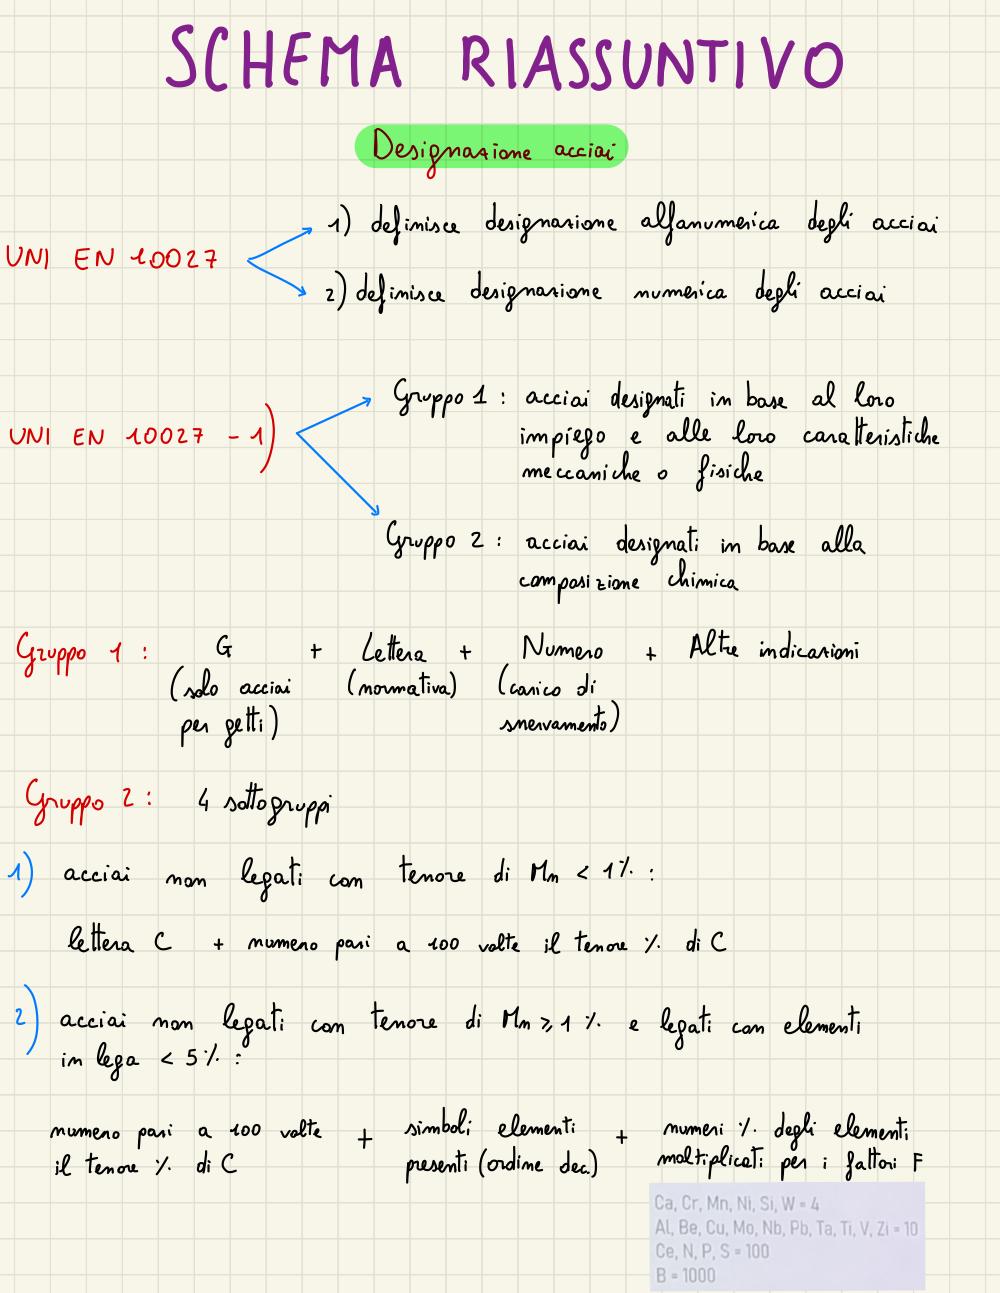 SCHEMA RIASSUNTIVO
Designazione acciai
UNI EN 10027
1) definisce designazione alfanumerica degli acciai
2) definisce designazione numerica degli acciai
UNI EN 10027 - 1)
Gruppo 1 : acciai designati in base al loro
impiego e alle loro caratteristiche
meccaniche o fisiche
Gruppo 2 : acciai designati in base alla
composizione chimica
Gruppo 1 : G + Lettera + Numero + Altre indicazioni
(solo acciai (normativa) (carico di
per getti) snervamento)
Gruppo 2 : 4 sottogruppi
1) acciai non legati con tenore di Mn < 1% :
lettera C + numero pari a 100 volte il tenore % di C
2) acciai non legati con tenore di Mn ⩾ 1 % e legati con elementi
in lega < 5% :
numero pari a 100 volte + simboli elementi + numeri % degli elementi
il tenore % di C presenti (ordine dec.) moltiplicati per i fattori F
Ca, Cr, Mn, Ni, Si, W = 4
Al, Be, Cu, Mo, Nb, Pb, Ta, Ti, V, Zi = 10
Ce, N, P, S = 100
B = 1000